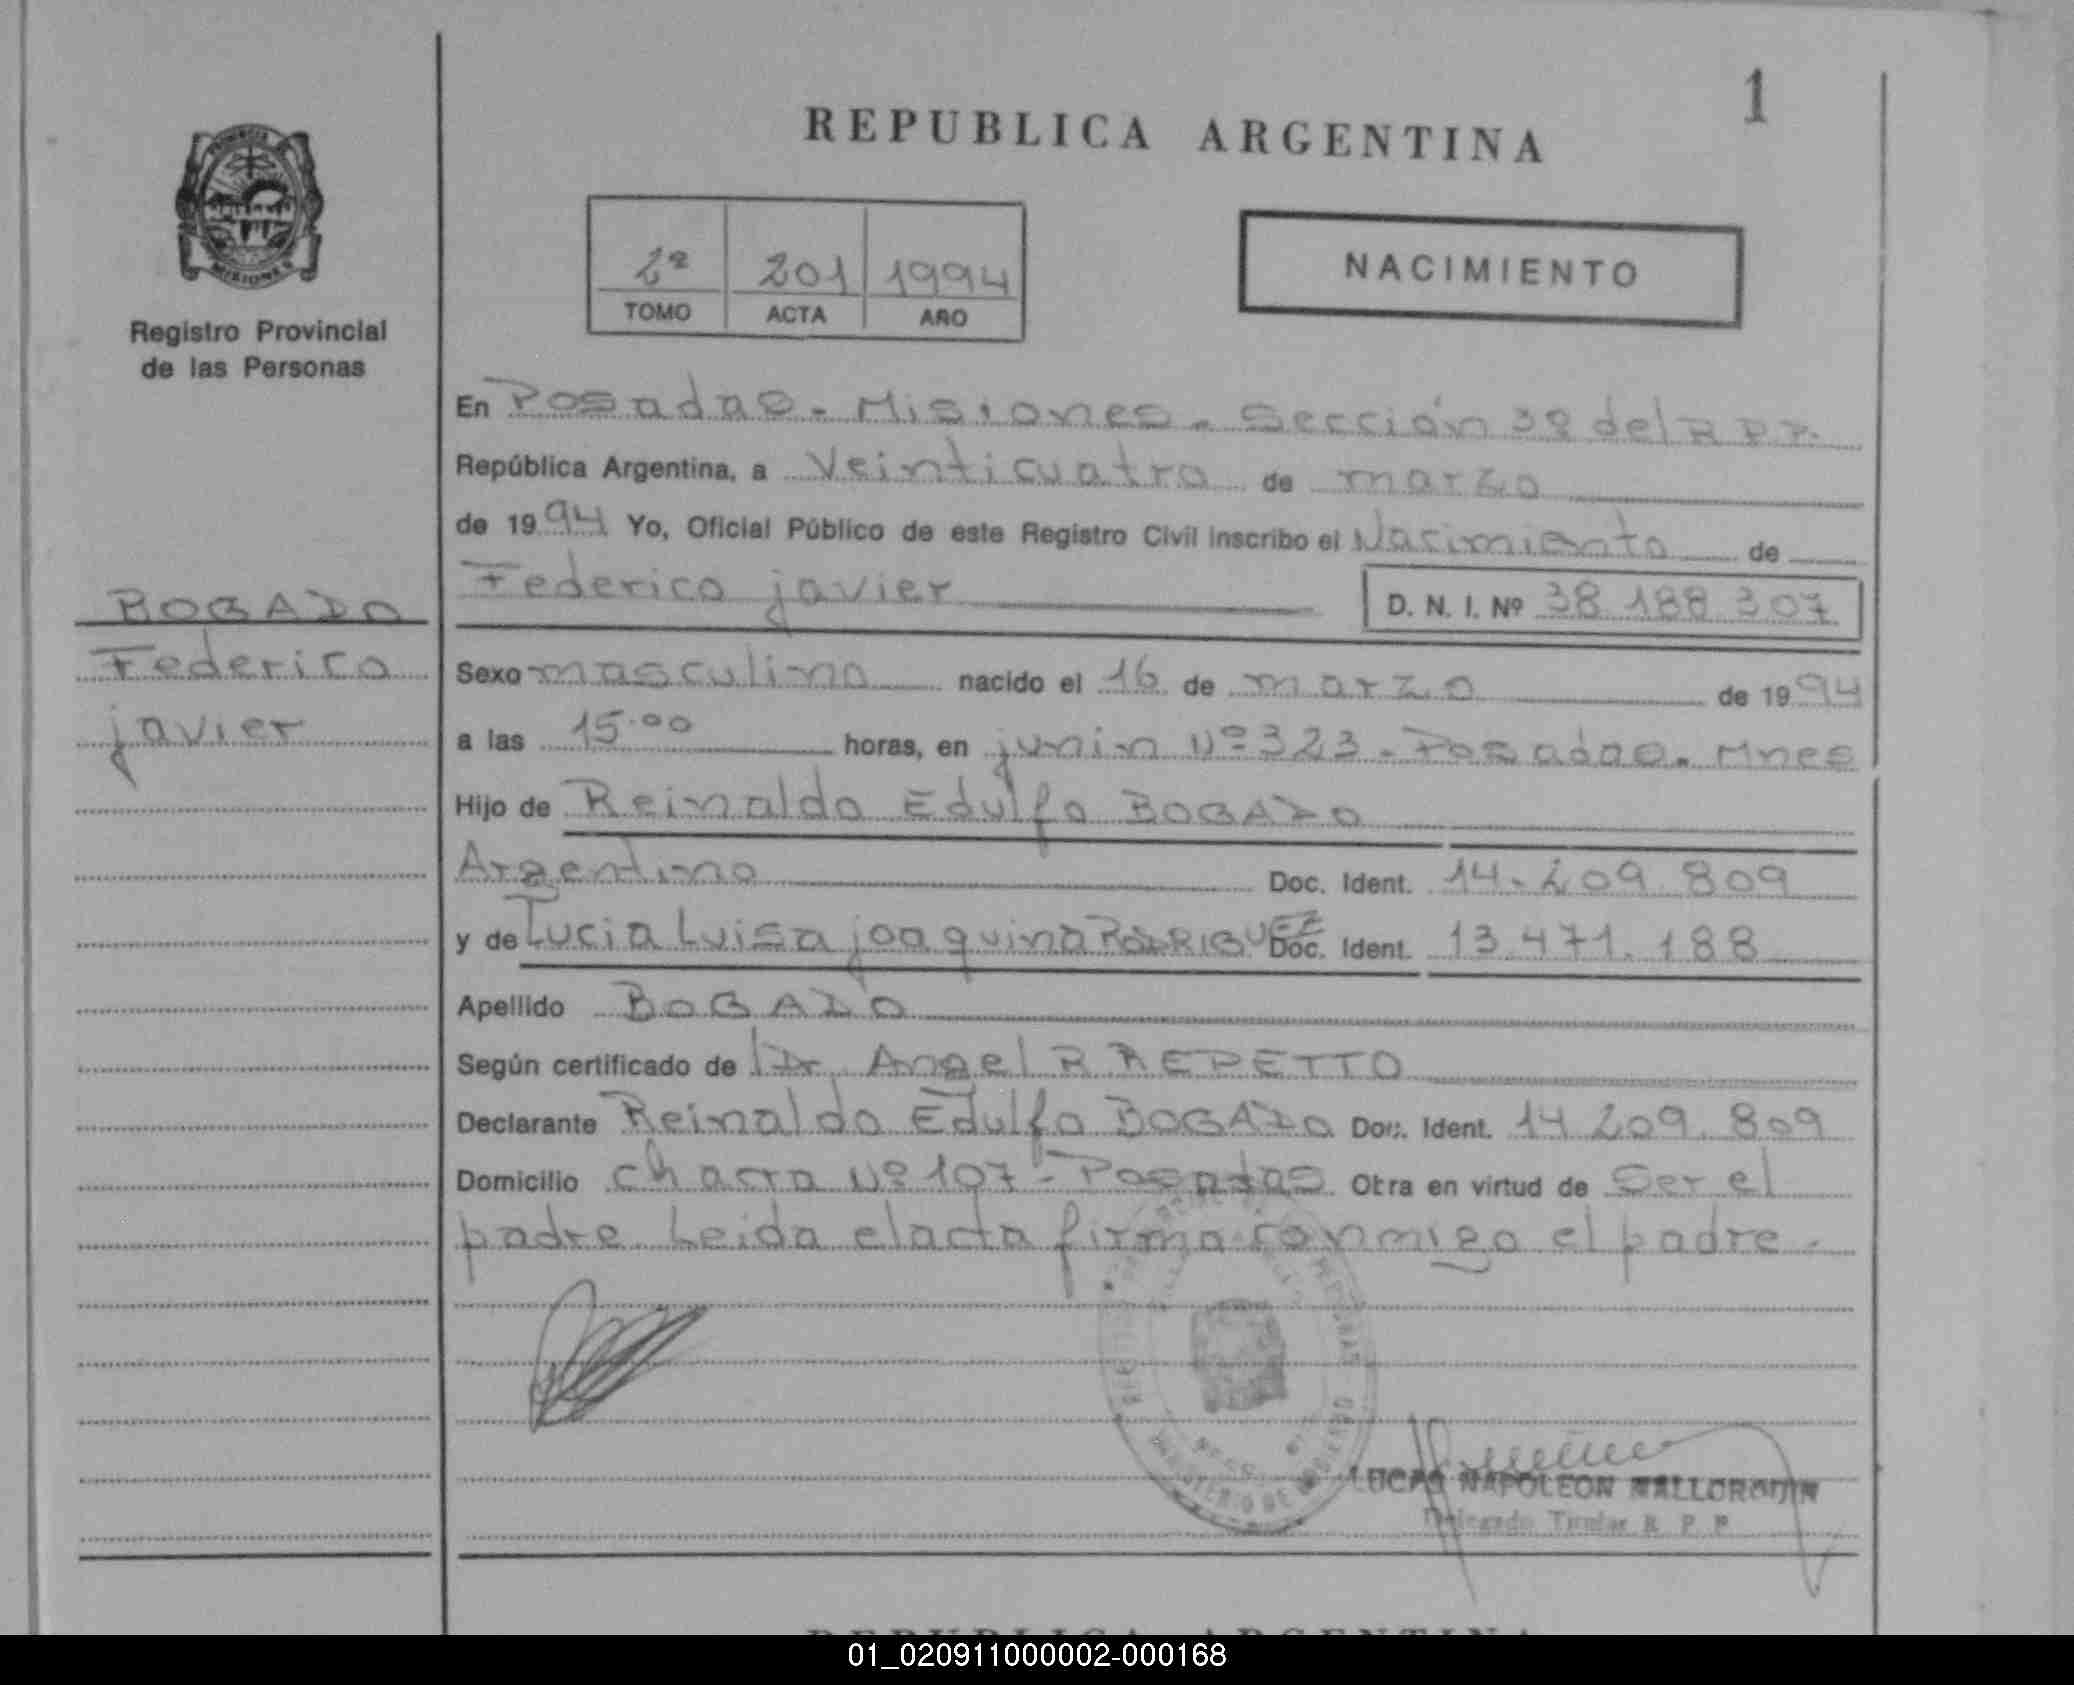 1
REPUBLICA ARGENTINA
PROVINCIA DE
MISIONES
Registro Provincial
de las Personas
2ª 201 1994
TOMO ACTA AÑO
NACIMIENTO
En Posadas - Misiones - Sección 3º del R P P.
República Argentina, a Veinticuatro de marzo
de 1994 Yo, Oficial Público de este Registro Civil inscribo el Nacimiento de
Federico javier D. N. I. Nº 38.188.307
BOGADO
Federico
javier
Sexo masculino nacido el 16 de marzo de 1994
a las 15.00 horas, en junin Nº 323 - Posadas - Mnes
Hijo de Reinaldo Edulfo BOGADO
Argentino Doc. Ident. 14.209.809
y de Lucia Luisa joaquina RODRIGUEZ Doc. Ident. 13.471.188
Apellido BOGADO
Según certificado de Dr. Angel R REPETTO
Declarante Reinaldo Edulfo BOGADO Doc. Ident. 14 209.809
Domicilio chacra Nº 107 - Posadas Otra en virtud de Ser el
padre Leida el acta firma conmigo el padre.
MINISTERIO DE GOBIERNO
LUCAS NAPOLEON
Delegado Titular R. P. P.
REPUBLICA ARGENTINA
01_020911000002-000168